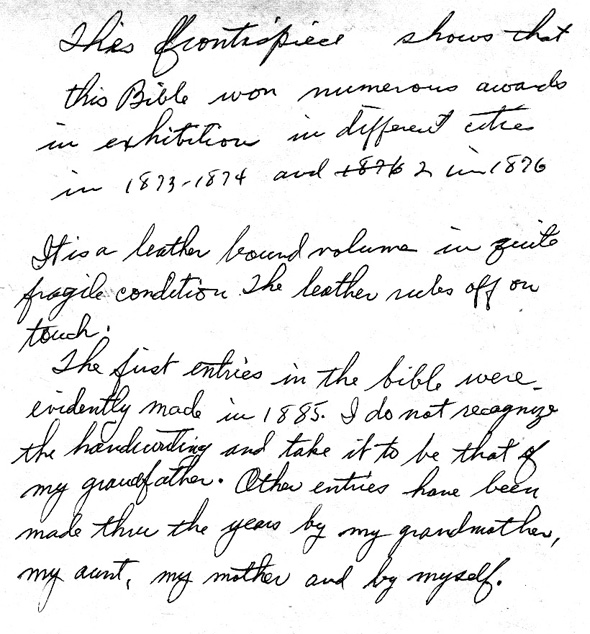 This frontispiece shows that
this Bible won numerous awards
in exhibition in different cities
in 1873-1874 and 1876 2 in 1876
It is a leather bound volume in quite
fragile condition. The leather rubs off on
touch.
The first entries in the bible were
evidently made in 1885. I do not recognize
the handwriting and take it to be that of
my grandfather. Other entries have been
made thru the years by my grandmother,
my aunt, my mother and by myself.